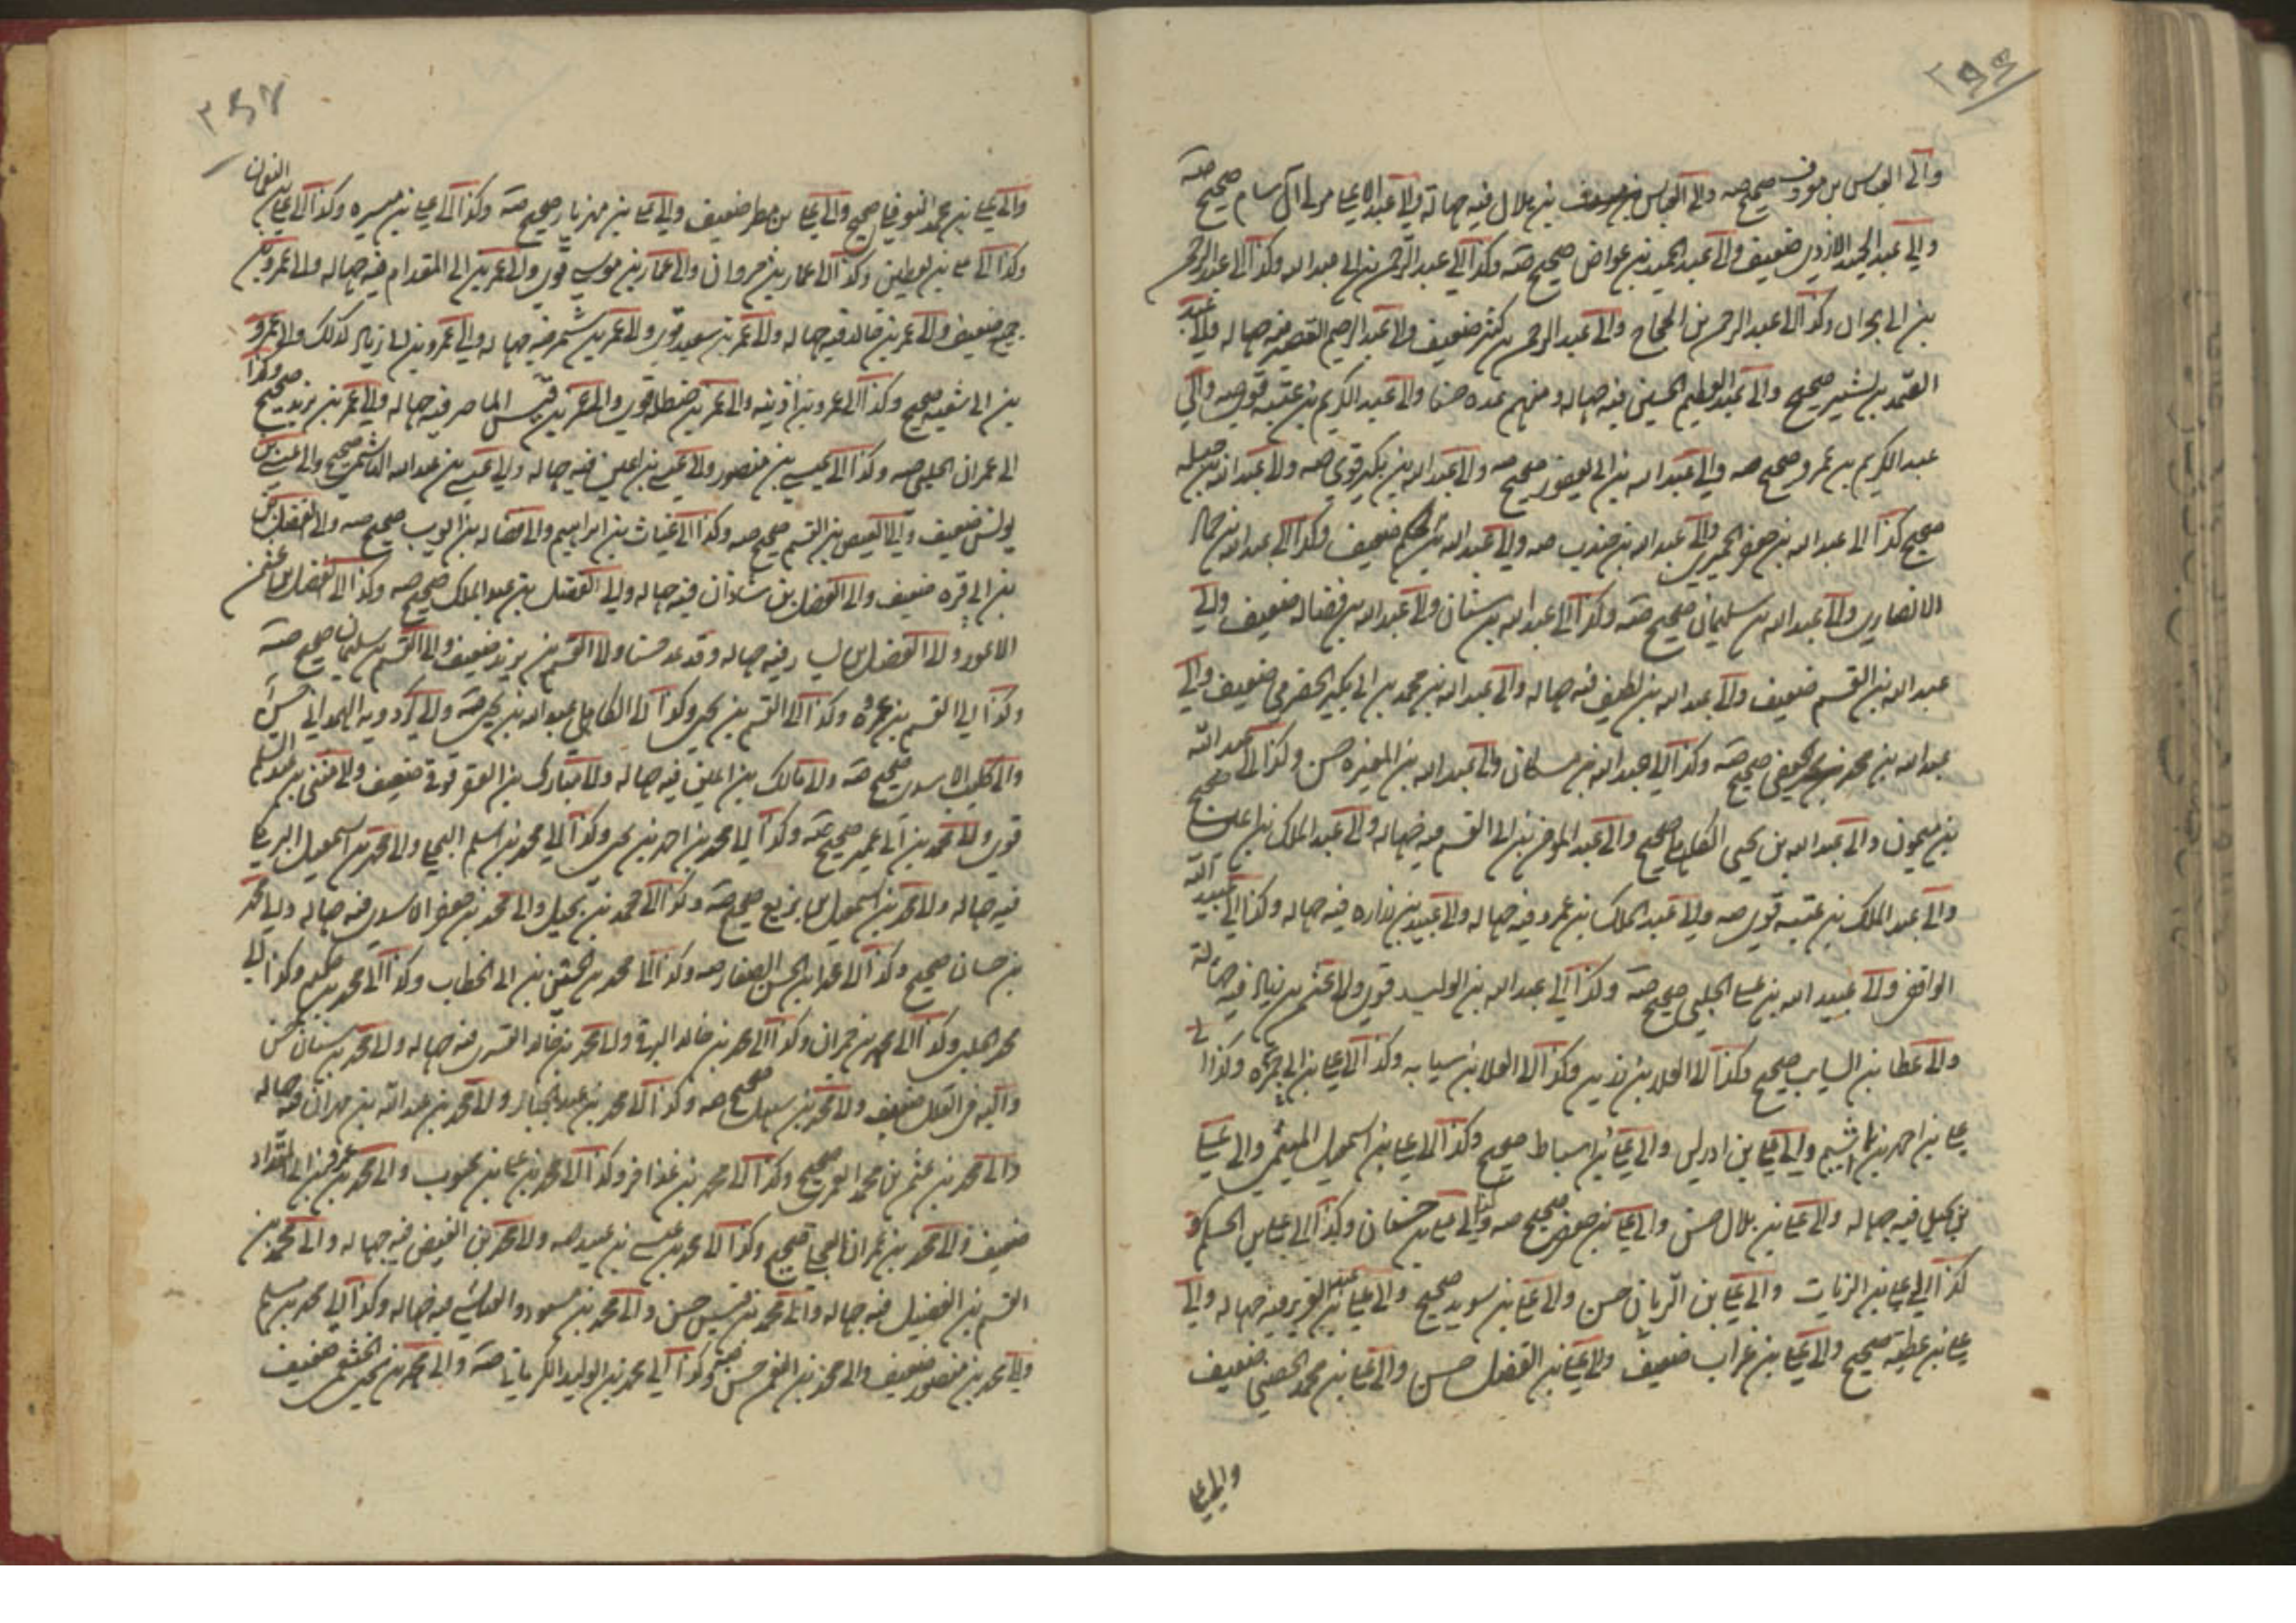 والى العباس بن معروف صحيح صه والى العباس بن
والى عبد الحميد الازدى ضعيف والى عبد الحميد بن عواض صحيح صه وكذا الى عبد الرحمن بن ابى عبد الله وكذا الى عبد الرحمن
بن ابى نجران وكذا الى عبد الرحمن بن الحجاج والى عبد الرحمن بن كثير ضعيف والى عبد الرحيم القصير فيه جهاله والى عبد
الصمد بن بشير صحيح والى عبد العظيم الحسنى فيه جهاله ومنهم عده حسنا والى عبد الكريم بن عتبه قوى صه والى
عبد الكريم بن عمرو صحيح صه والى عبد الله بن ابى يعفور صحيح صه والى عبد الله بن بكير قوى صه والى عبد الله بن جبله
صحيح كذا الى عبد الله بن جعفر الحميرى والى عبد الله بن جندب صه والى عبد الله بن الحكم ضعيف وكذا الى عبد الله بن حماد
الانصارى والى عبد الله بن سليمان صحيح صه وكذا الى عبد الله بن سنان والى عبد الله بن فضاله ضعيف والى
عبد الله بن القسم ضعيف والى عبد الله بن لطيف فيه جهاله والى عبد الله بن محمد بن ابى بكير الحضرمى ضعيف والى
عبد الله بن محمد الجعفى صحيح صه وكذا الى عبد الله بن مسكان والى عبد الله بن المغيره حسن وكذا الى عبد الله
بن ميمون والى عبد الله بن يحيى الكاهلى صحيح والى عبد المؤمن بن ابى القسم فيه جهاله والى عبد الملك بن اعين صحيح
والى عبد الملك بن عتبه قوى صه والى عبد الملك بن عمرو فيه جهاله والى عبيد بن زراره فيه جهاله وكذا الى عبيد الله
الرافقى والى عبيد الله بن على الحلبى صحيح صه وكذا الى عبد الله بن الوليد قوى والى عثمن بن زياد فيه جهالة
والى عطا بن السايب صحيح وكذا الى العلا بن رزين وكذا الى العلا بن سيابه وكذا الى على بن ابى حمزه وكذا الى
على بن احمد بن اشيم والى على بن ادريس والى على بن اسباط صحيح وكذا الى على بن اسمعيل الميثمى والى على
بن بجيل فيه جهاله والى على بن بلال حسن والى على بن جعفر صحيح صه والى على بن حسان وكذا الى على بن الحكم و
كذا الى على بن الزيات والى على بن الريان حسن والى على بن سويد صحيح والى على بن عبد العزيز فيه جهاله والى
على بن عطيه صحيح والى على بن غراب ضعيف والى على بن الفضل حسن والى على بن محمد الحضينى ضعيف
والى على
والى على بن محمد النوفلى صحيح والى على بن مطر ضعيف والى على بن مهزيار صحيح صه وكذا الى على بن ميسره وكذا الى على بن النعمان
وكذا الى على بن يقطين وكذا الى عمار بن مروان والى عمار بن موسى قوى والى عمر بن ابى المقدام فيه جهاله والى عمرو بن
جميع ضعيف والى عمر بن خالد فيه جهاله والى عمر بن سعيد قوى والى عمرو بن شمر فيه جهاله والى عمر بن ابى زياد كذلك والى عمر و
بن ابى شعبه صحيح وكذا الى عمر بن اذينه والى عمر بن حنظله قوى والى عمر بن قيس الماصر فيه جهاله والى عمر بن يزيد صحيح وكذا
الى عمران الحلبى صه وكذا الى عيسى بن منصور والى عيسى بن اعين فيه جهاله والى عيسى بن عبد الله الهاشمى صحيح والى عيسى بن
يونس ضعيف والى العيص بن القسم صحيح صه وكذا الى غياث بن ابراهيم والى فضاله بن ايوب صحيح صه والى الفضل بن
بن ابى قره ضعيف والى الفضل بن شاذان فيه جهاله والى الفضل بن عبد الملك صحيح صه وكذا الى الفضيل بن عثمن
الاعور والى الفضيل بن يسار فيه جهاله وقد عد حسنا والى القسم بن بريد ضعيف والى القسم بن سليمان صحيح صه
وكذا الى القسم بن عروه وكذا الى القسم بن يحيى وكذا الى الكاهلى عبد الله بن يحيى صه والى كردويه الهمدانى حسن
والى كليب الاسدى صحيح صه والى مالك بن اعين فيه جهاله والى مبارك بن العقرقوفى ضعيف والى مثنى بن عبد السلم
قوى والى محمد بن ابى عمير صحيح صه وكذا الى محمد بن احمد بن يحيى وكذا الى محمد بن اسلم الجبلى والى محمد بن اسمعيل البرمكى
فيه جهاله والى محمد بن اسمعيل بن بزيع صحيح صه وكذا الى محمد بن بجيل والى محمد بن جعفر الاسدى فيه جهاله والى محمد
بن حسان صحيح وكذا الى محمد بن الحسن الصفار صه وكذا الى محمد بن الحسين بن ابى الخطاب وكذا الى محمد بن حكيم وكذا الى
محمد الحلبى وكذا الى محمد بن حمران وكذا الى محمد بن خالد البرقى والى محمد بن خالد القسرى فيه جهاله والى محمد بن سنان حسن
ضعيف والى محمد بن سهل صحيح صه وكذا الى محمد بن عبد الجبار والى محمد بن عبد الله بن مهران فيه جهاله
والى محمد بن عثمن العمرى صحيح وكذا الى محمد بن عذافر وكذا الى محمد بن على بن محبوب والى محمد بن عمرو بن ابى المقدام
ضعيف والى محمد بن عمران العجلى صحيح وكذا الى محمد بن عيسى بن عبيد صه والى محمد بن الفيض فيه جهاله والى محمد بن
القسم بن الفضيل فيه جهاله والى محمد بن قيس حسن والى محمد بن مسعود العياشى فيه جهاله وكذا الى محمد بن مسلم
والى محمد بن منصور ضعيف والى محمد بن النعمن حسن وكذا الى محمد بن الوليد الكرمانى صه والى محمد بن يحيى الخثعمى ضعيف